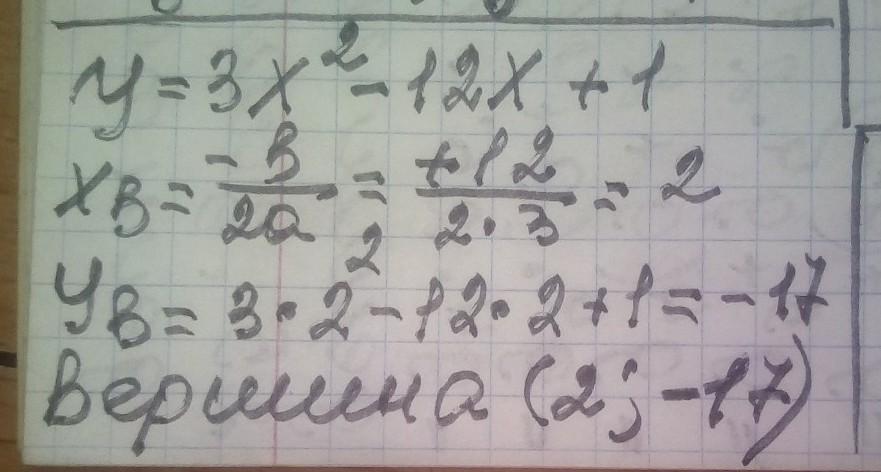 y = 3x² - 12x + 1
xв = -в/2a = +12/2·3 = 2
yв = 3·2² - 12·2 + 1 = -17
Вершина (2; -17)